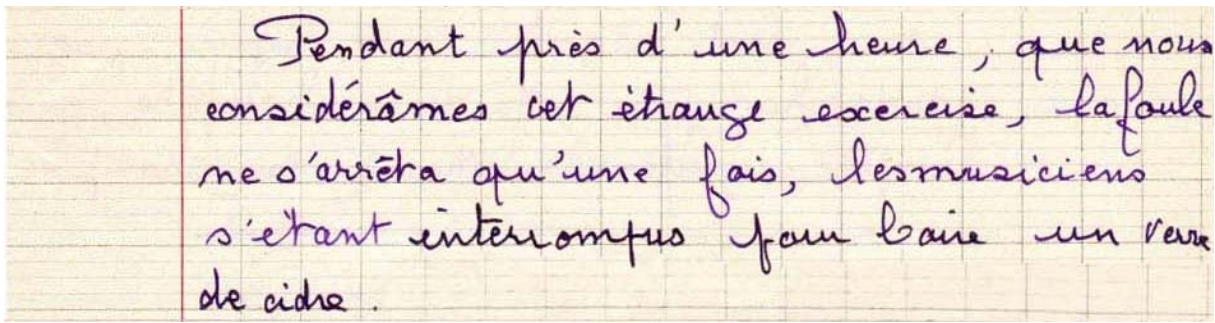 Pendant près d'une heure, que nous
considérâmes cet étrange exercise, la foule
ne s'arrêta qu'une fois, les musiciens
s'étant interrompus pour boire un verre
de cidre.